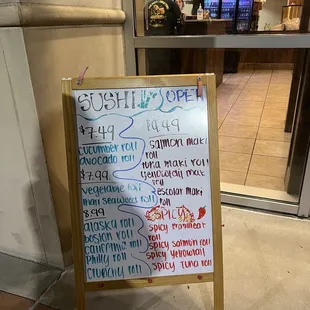 SUSHI OPEN
$7.49
cucumber roll
avocado roll
$7.99
vegetable roll
mini seaweed roll
8.99
alaska roll
boston roll
california roll
philly roll
crunchy roll
$9.49
salmon maki
roll
tuna maki roll
yellowtail maki
roll
escolar maki
roll
SPICY
spicy
roll
spicy salmon roll
spicy yellowtail
spicy tuna roll